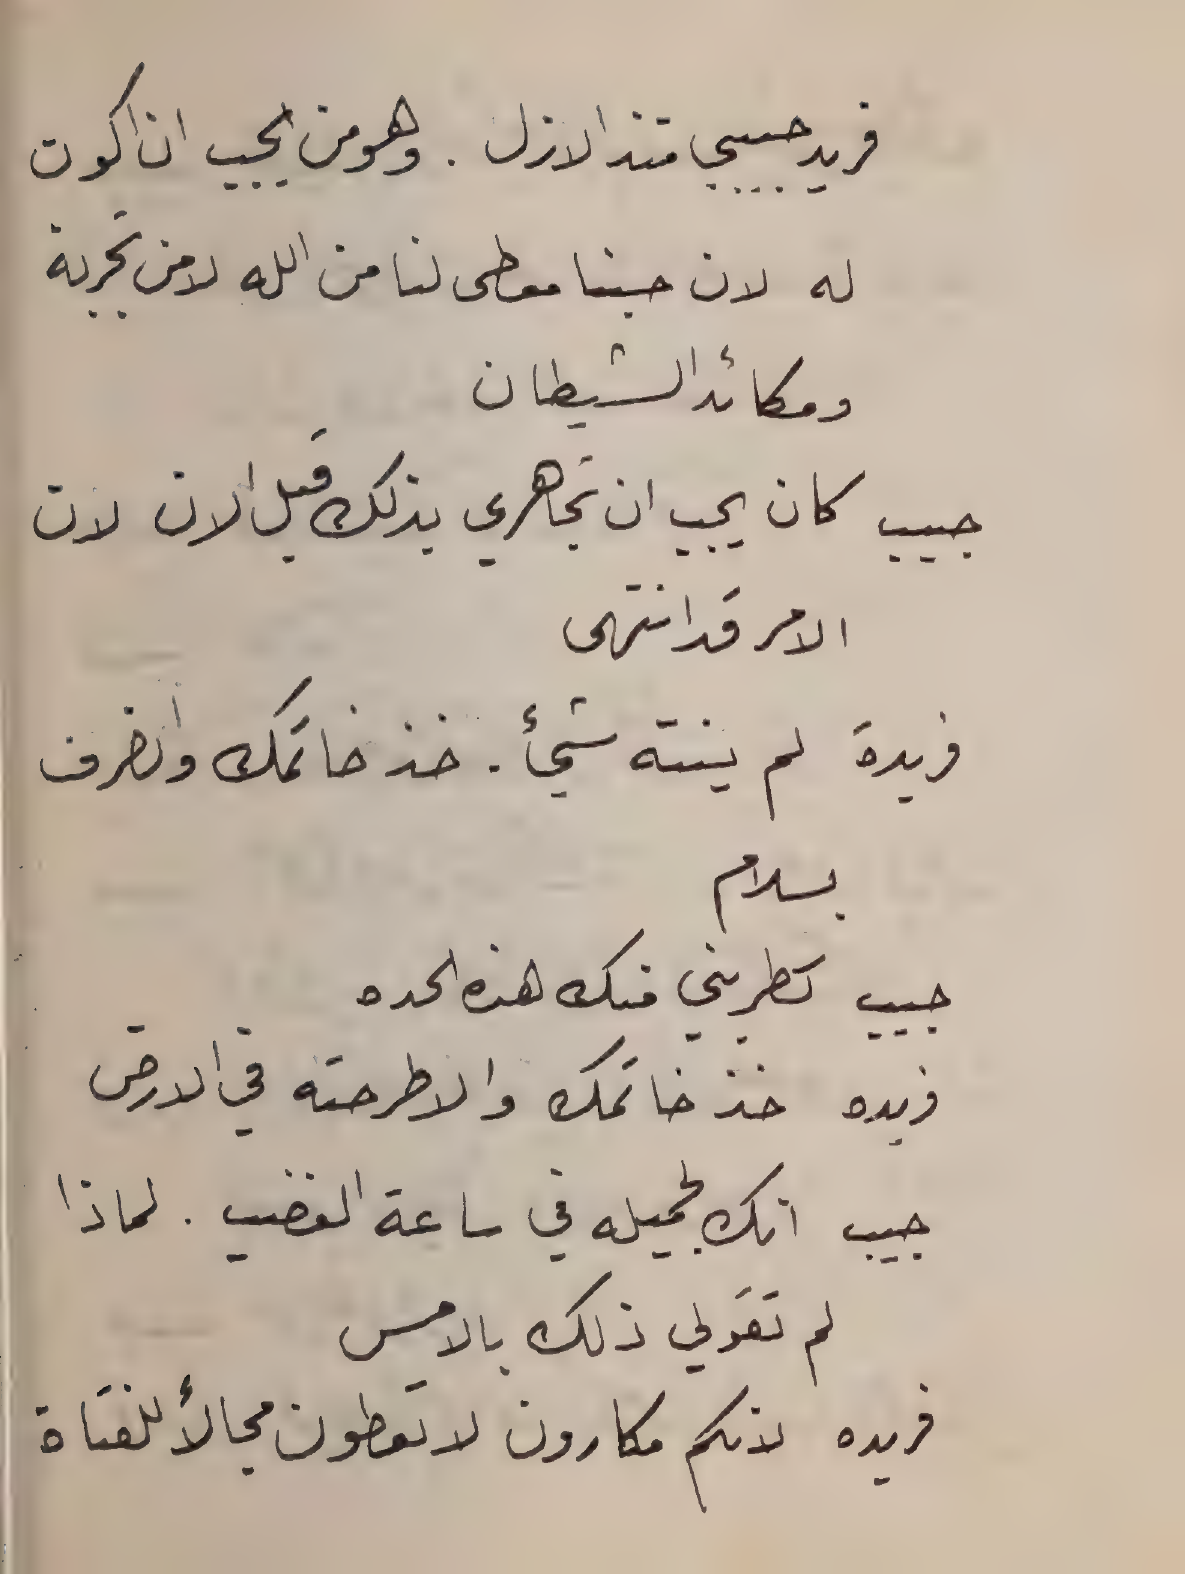 فريد حبيبي منذ الازل . وهو من يجب ان اكون
له لان حبنا معطى لنا من الله لا من تجربة
ومكائد الشيطان
حبيب كان يجب ان تجاهري بذلك قبل الان لان
الامر قد انتهى
فريدة لم ينته شيأ . خذ خاتمك وانصرف
بسلام
حبيب تطربني منك هذه الحده
فريده خذ خاتمك والا طرحته في الارض
حبيب انك لجميله في ساعة الغضب . لماذا
لم تقولي ذلك بالامس
فريده لانكم مكارون لا تعطون مجالاً للفتاة